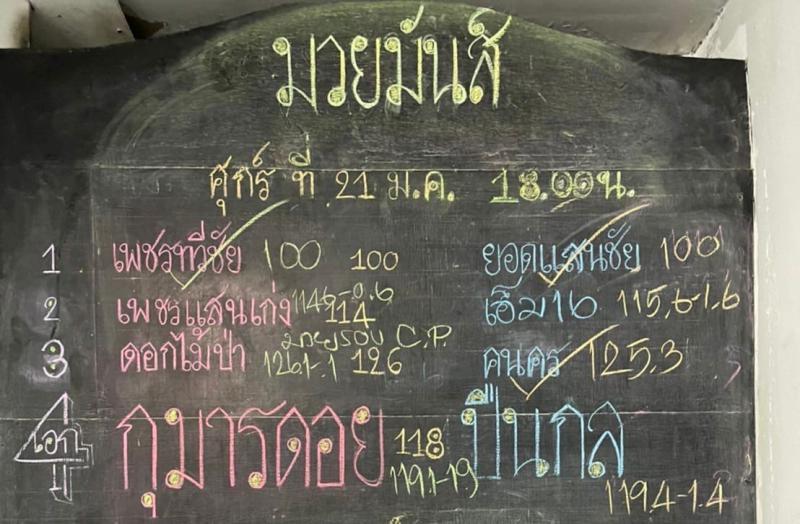 มวยมันส์
ศุกร์ ที่ 21 ม.ค. 18.00น.
1 เพชรทวีชัย 100 100 ยอดแสนชัย 100
2 เพชรแสนเก่ง 114.6-0.6 114 เอ็ม16 115.6-1.6
3 ดอกไม้ป่า 126.1-.1 126 C.P. คนคร 125.3
4 เอก กุมารดอย 118 119.1-19 ปืนกล 119.4-1.4